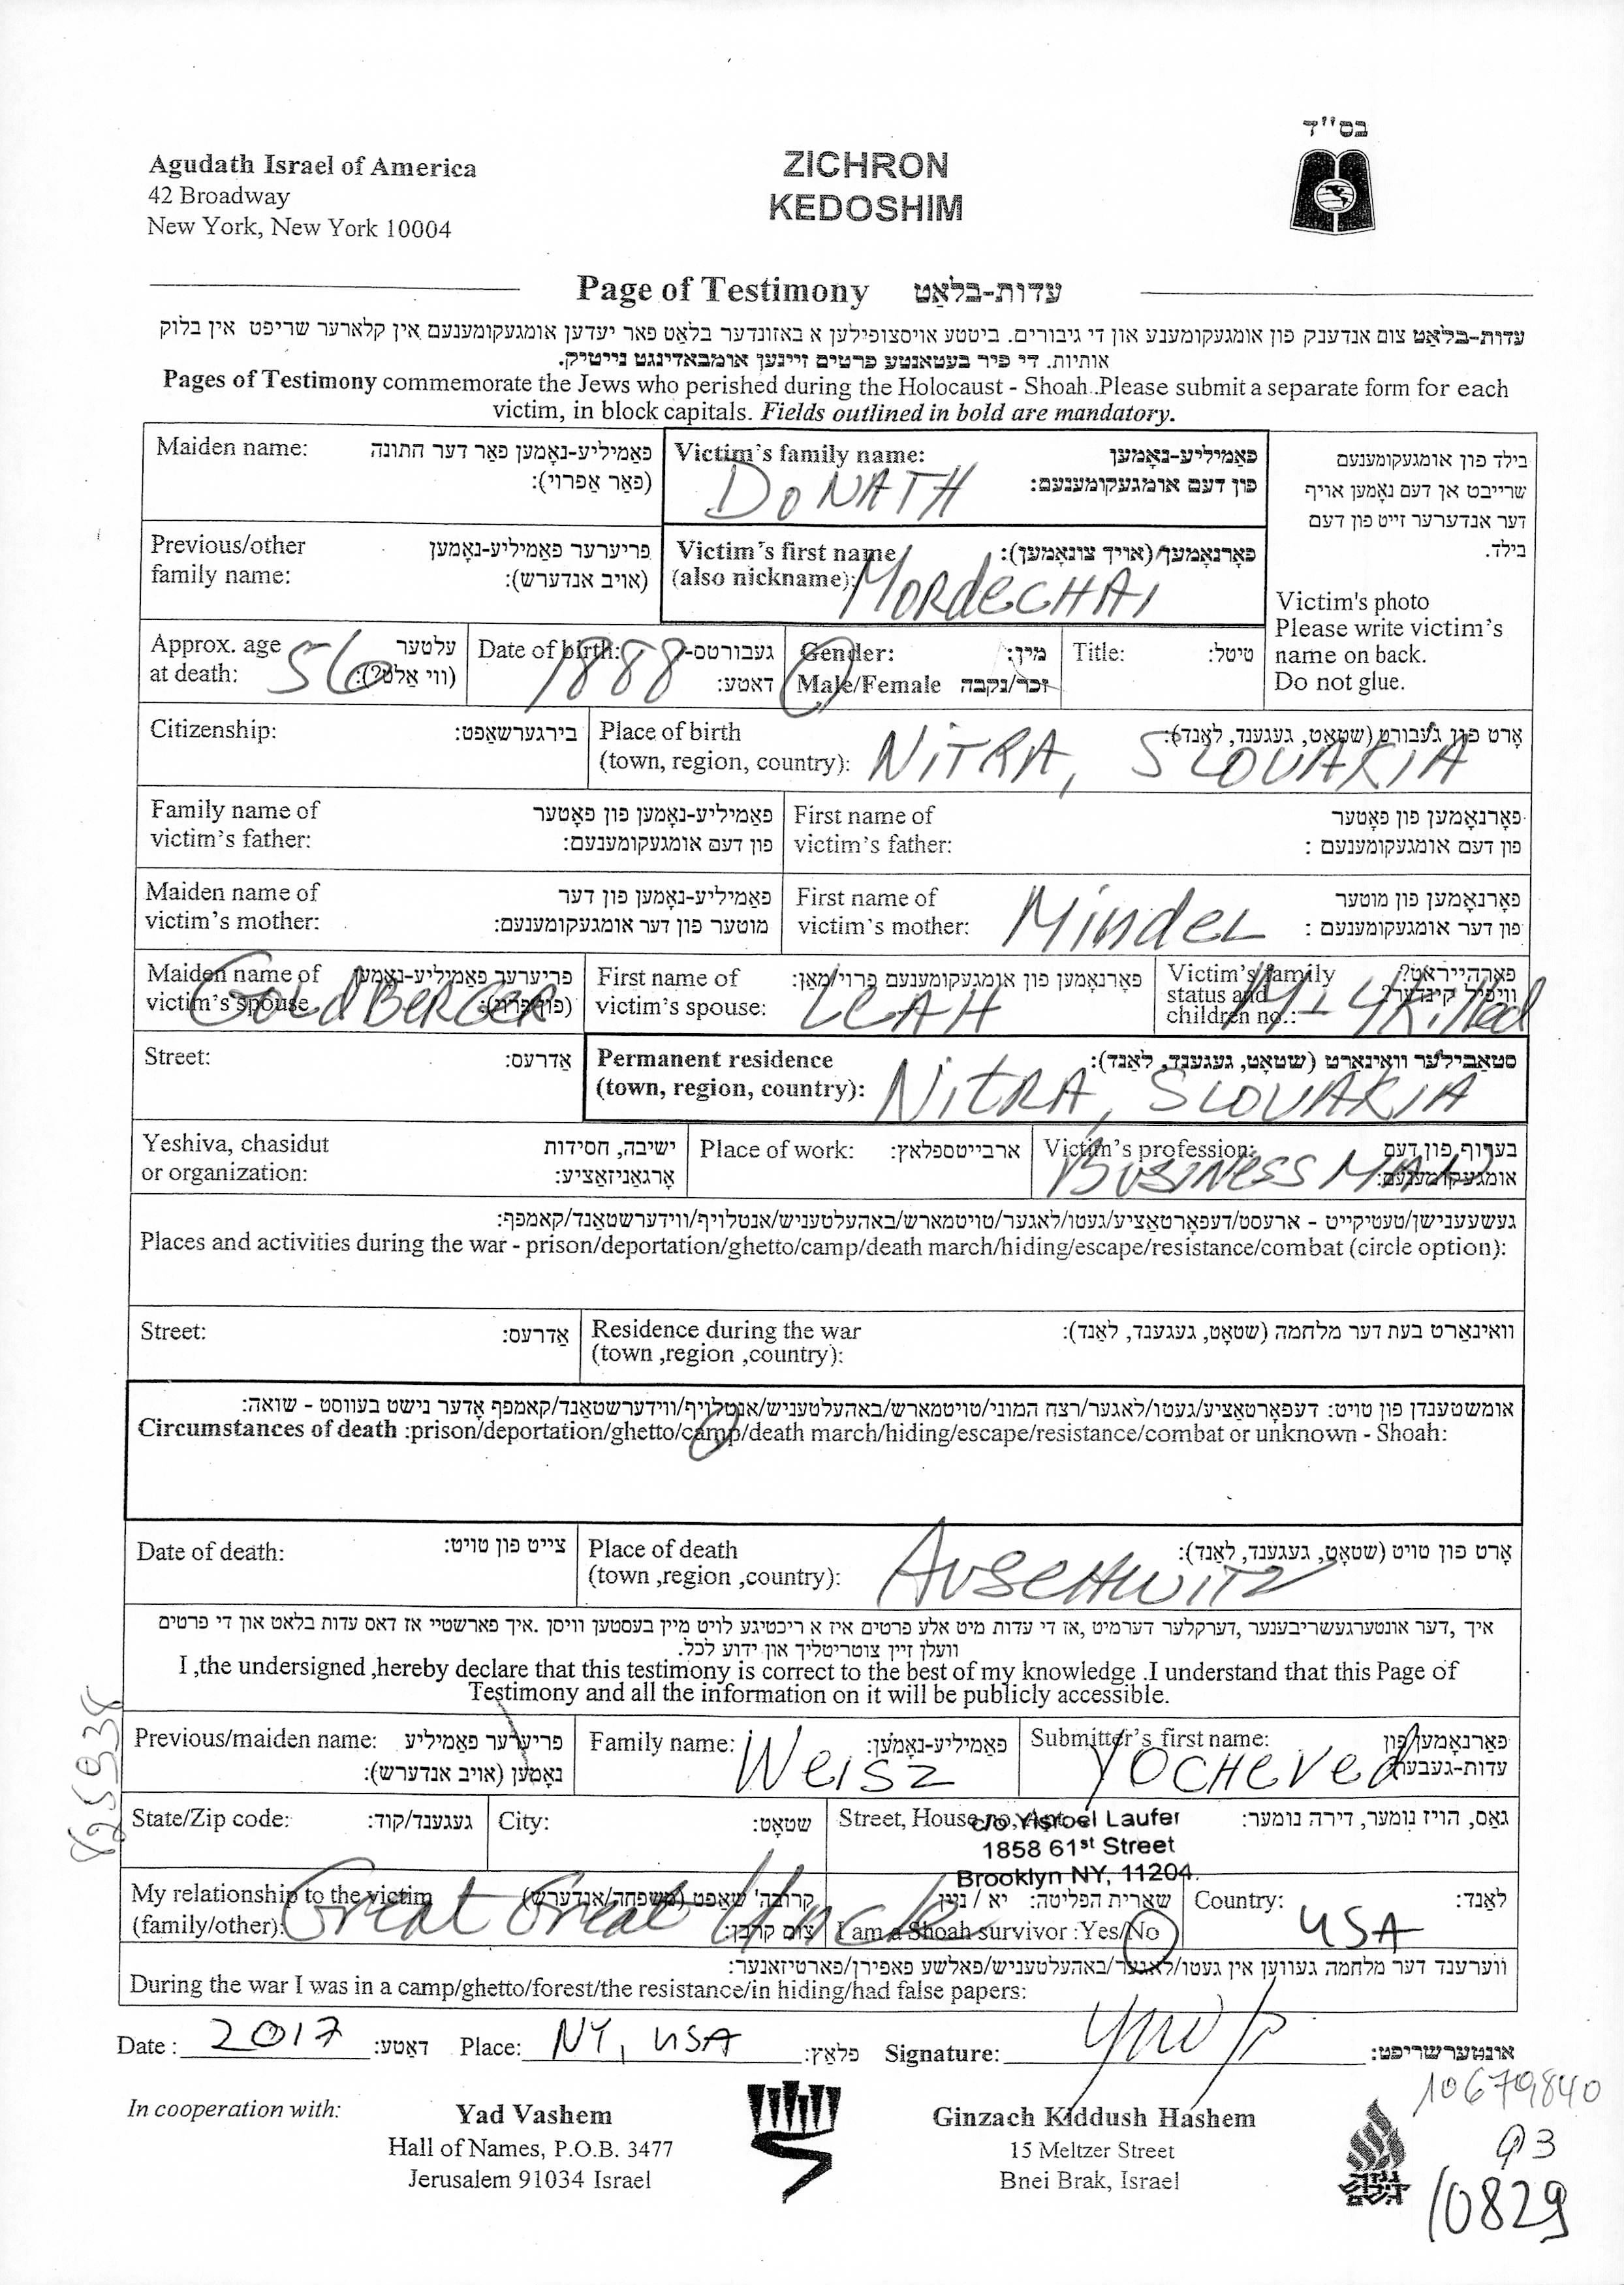 בס"ד
Agudath Israel of America
42 Broadway
New York, New York 10004
ZICHRON
KEDOSHIM
Page of Testimony עדות-בלאַט
עדות-בלאַט צום אנדענק פון אומגעקומענע און די גיבורים. ביטטע אויסצופילען א באזונדער בלאט פאר יעדען אומגעקומענעם אין קלארער שריפט אין בלוק
אותיות. די פיר בעטאנטע פרטים זיינען אומבאדינגט נייטיק.
Pages of Testimony commemorate the Jews who perished during the Holocaust - Shoah..Please submit a separate form for each
victim, in block capitals. Fields outlined in bold are mandatory.
Maiden name: פאַמיליע-נאָמען פאר דער התונה
(פאר אַפרוי):
Victim's family name: פאַמיליע-נאָמען
פון דעם אומגעקומענעם:
DONATH
בילד פון אומגעקומענעם
שרייבט אן דעם נאָמען אויף
דער אנדערער זייט פון דעם
בילד.
Victim's photo
Please write victim's
name on back.
Do not glue.
Previous/other פריערער פאַמיליע-נאָמען
family name: (אויב אנדערש):
Victim's first name פאָרנאָמען/(אויך צונאָמען):
(also nickname): MORDECHAI
Approx. age עלטער
at death: 56 (ווי אַלט?):
Date of birth: געבורטס-
דאטע: 1888
Gender: מין:
Male/Female זכר/נקבה
Title: טיטל:
Citizenship: בירגערשאַפט:
Place of birth אָרט פון געבורט (שטאָט, געגענד, לאַנד):
(town, region, country): NITRA, SLOVAKIA
Family name of פאַמיליע-נאָמען פון פאָטער
victim's father: פון דעם אומגעקומענעם:
First name of פאָרנאָמען פון פאָטער
victim's father: פון דעם אומגעקומענעם :
Maiden name of פאַמיליע-נאָמען פון דער
victim's mother: מוטער פון דער אומגעקומענעם:
First name of פאָרנאָמען פון מוטער
victim's mother: Mindel פון דער אומגעקומענעם :
Maiden name of פריערער פאַמיליע-נאָמען
victim's spouse (פון פרוי):
GOLDBERGER
First name of פאָרנאָמען פון אומגעקומענעם פרוי/מאַן:
victim's spouse: LEAH
Victim's family פארהייראט?
status and וויפיל קינדער?
children no.: M - 4 killed
Street: אַדרעס:
Permanent residence סטאַבילער וואינאָרט (שטאָט, געגענד, לאַנד):
(town, region, country): NITRA, SLOVAKIA
Yeshiva, chasidut ישיבה, חסידות
or organization: אָרגאַניזאַציע:
Place of work: ארבייטספלאץ:
Victim's profession: בערוף פון דעם
אומגעקומענעם:
BUSINESSMAN
געשעענישן/טעטיקייט - ארעסט/דעפאָרטאַציע/געטו/לאגער/טויטמארש/באהעלטעניש/אנטלויף/ווידערשטאַנד/קאמפף:
Places and activities during the war - prison/deportation/ghetto/camp/death march/hiding/escape/resistance/combat (circle option):
Street: אַדרעס:
Residence during the war וואינאַרט בעת דער מלחמה (שטאָט, געגענד, לאַנד):
(town ,region ,country):
אומשטענדן פון טויט: דעפאָרטאַציע/געטו/לאגער/רצח המוני/טויטמארש/באהעלטעניש/אנטלויף/ווידערשטאַנד/קאמפף אָדער נישט בעווסט - שואה:
Circumstances of death :prison/deportation/ghetto/camp/death march/hiding/escape/resistance/combat or unknown - Shoah:
Date of death: צייט פון טויט:
Place of death אָרט פון טויט (שטאָט, געגענד, לאַנד):
(town ,region ,country): AUSCHWITZ
איך ,דער אונטערגעשריבענער ,דערקלער דערמיט ,אז די עדות מיט אלע פרטים איז א ריכטיגע לויט מיין בעסטען וויסן .איך פארשטיי אז דאס עדות בלאט און די פרטים
וועלן זיין צוטריטליך און ידוע לכל.
I ,the undersigned ,hereby declare that this testimony is correct to the best of my knowledge .I understand that this Page of
Testimony and all the information on it will be publicly accessible.
Previous/maiden name: פריערער פאַמיליע
נאָמען (אויב אנדערש):
Family name: פאַמיליע-נאָמען:
Weisz
Submitter's first name: פאַרנאָמען פון
עדות-געבער
YOCHEVED
State/Zip code: געגענד/קוד:
City: שטאָט:
Street, House no, Apt. גאַס, הויז נומער, דירה נומער:
c/o Yisroel Laufer
1858 61st Street
Brooklyn NY, 11204
My relationship to the victim קרובה'שאַפט (משפחה/אנדערש)
(family/other): צום קרבן:
Great Great Uncle
שארית הפליטה: יא / ניין
I am a Shoah survivor :Yes/No
Country: לאַנד:
USA
ווערענד דער מלחמה געווען אין געטו/לאגער/באהעלטעניש/פאלשע פאפירן/פארטיזאנער:
During the war I was in a camp/ghetto/forest/the resistance/in hiding/had false papers:
Date : 2017 דאטע: Place: NY, USA פלאַץ: Signature: אונטערשריפט:
In cooperation with:
Yad Vashem
Hall of Names, P.O.B. 3477
Jerusalem 91034 Israel
Ginzach Kiddush Hashem
15 Meltzer Street
Bnei Brak, Israel
10679840
93
10829